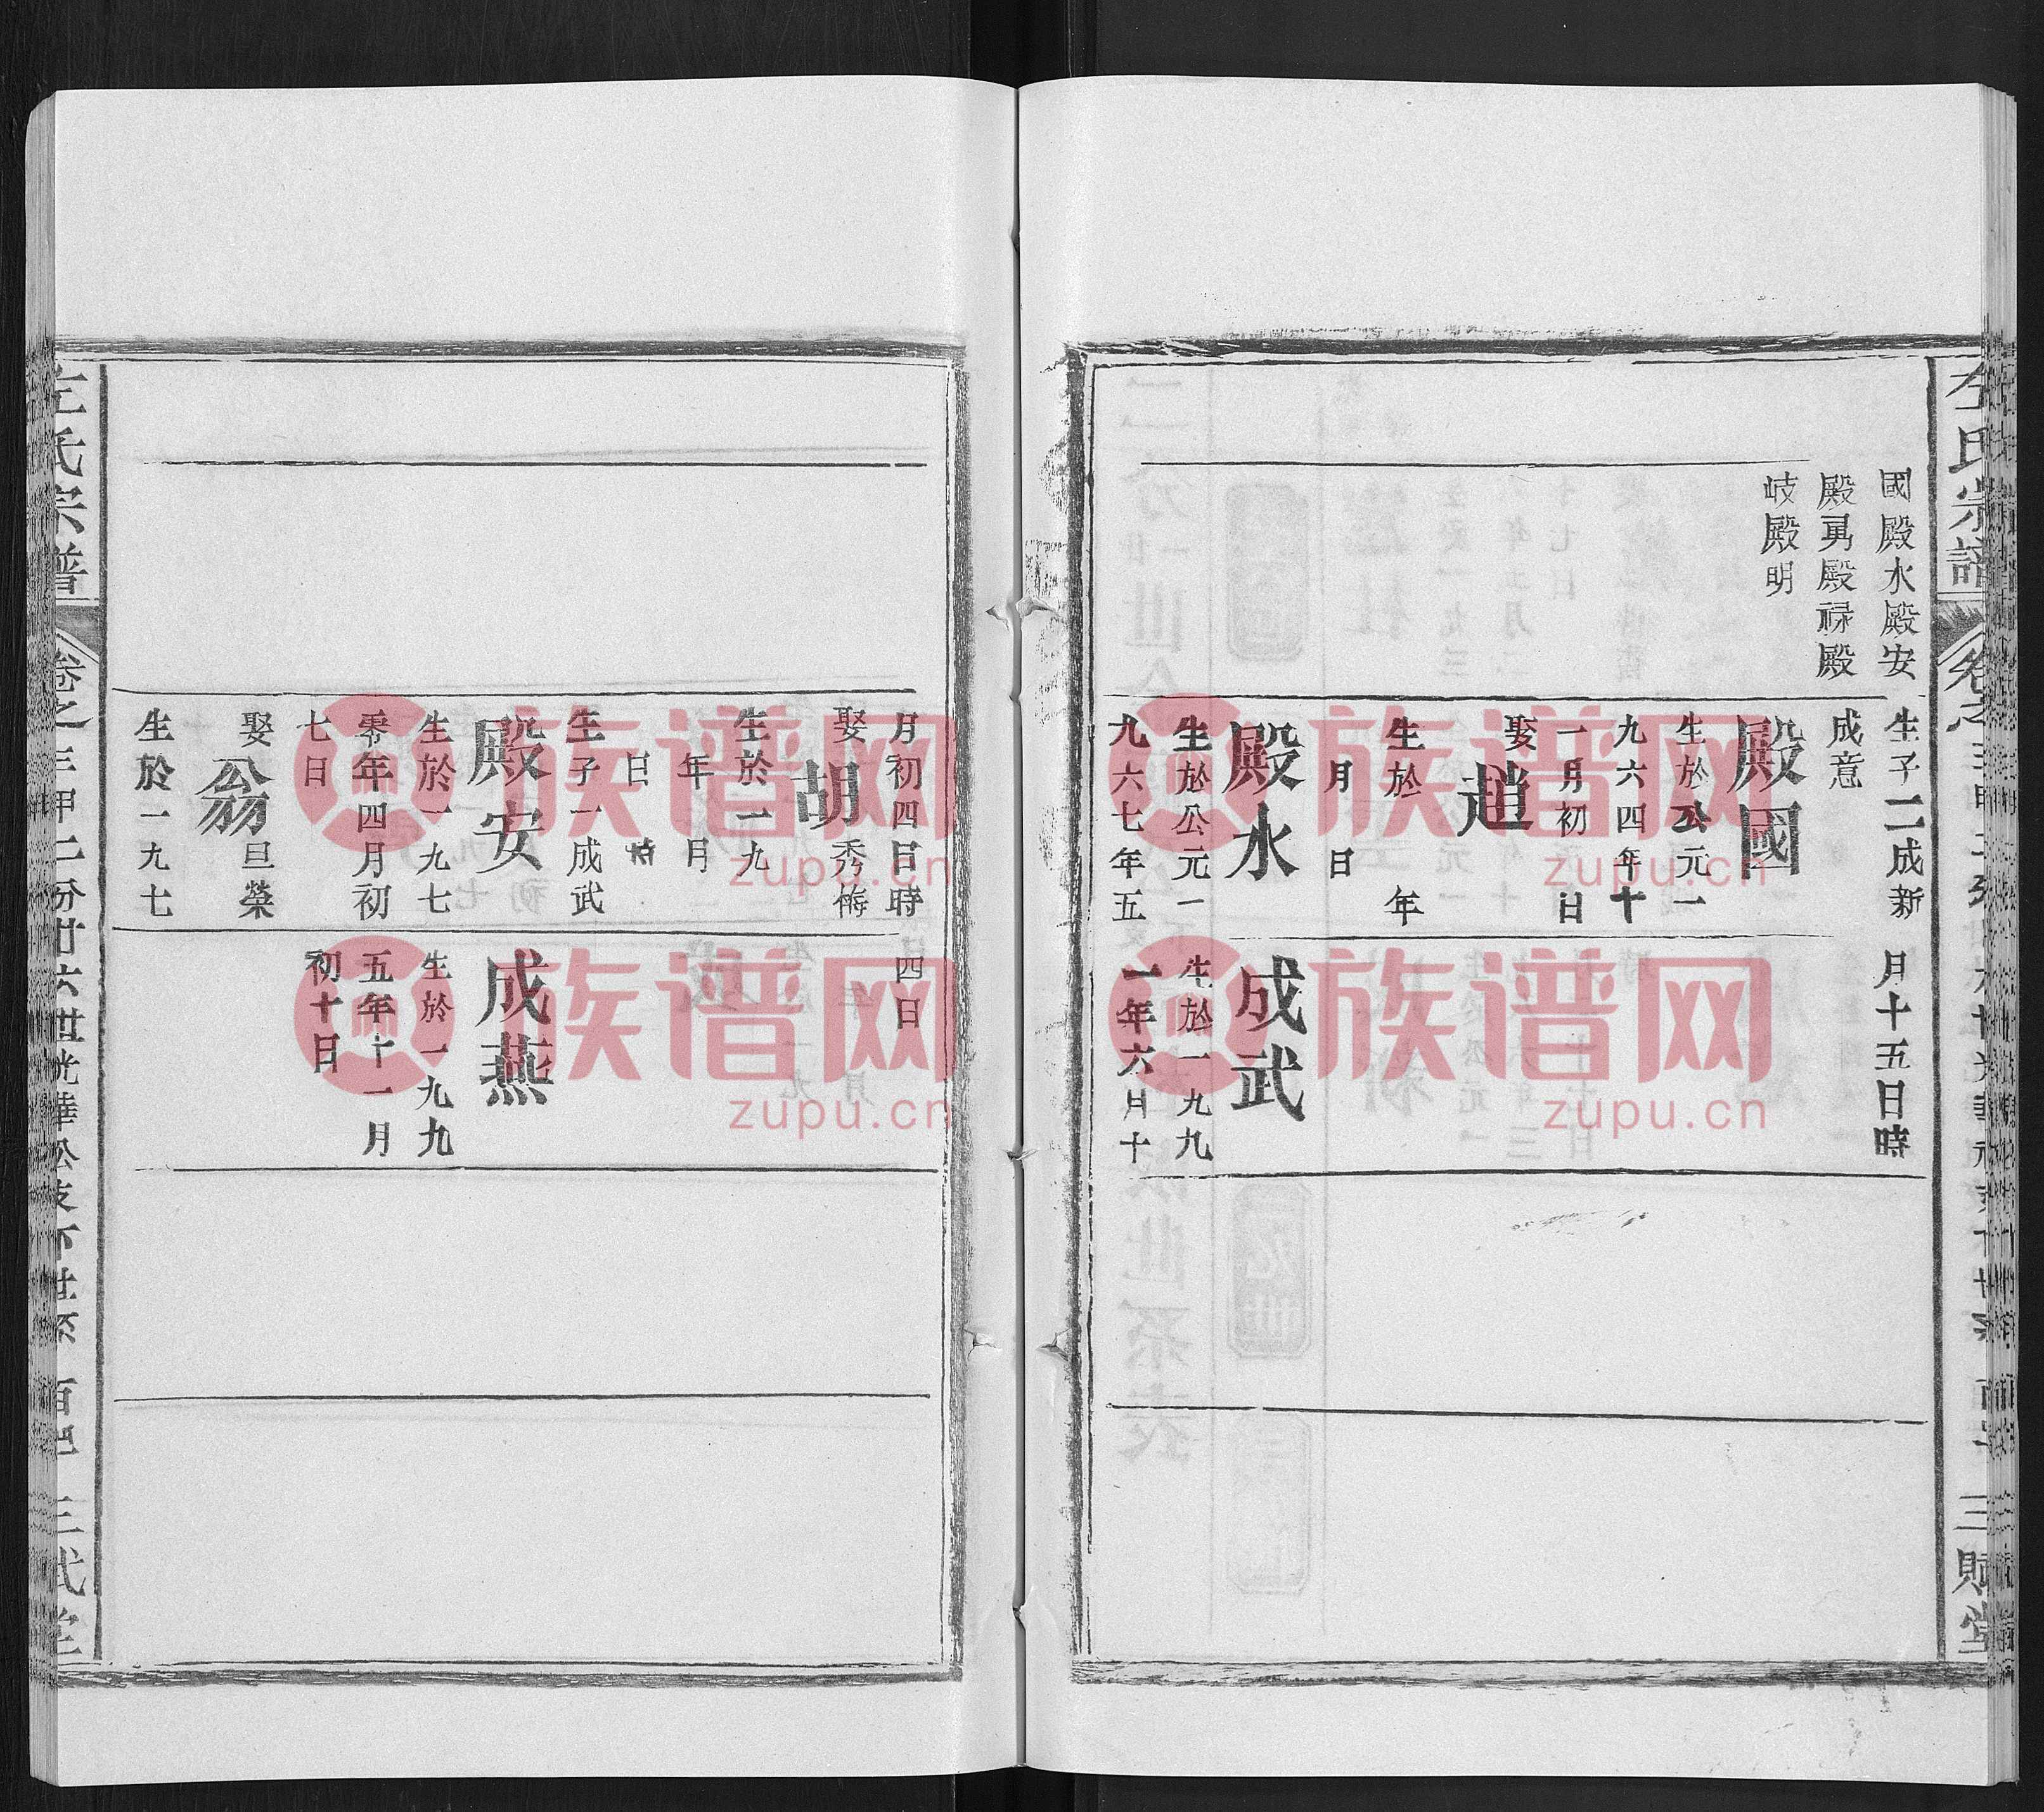 國殿水殿安
殿勇殿祿殿
岐殿明
生子二成新
成意
殿國
生於公元一
九六四年十
一月初 日
娶
趙
生於 年
月 日
殿水
生於公元一
九六七年五
月十五日時
成武
生於一九九
一年六月十
三賦堂
月初四日時
娶 秀梅
胡
生於一九
年 月
日 時
生子一成武
殿安
生於一九七
零年四月初
七日
娶 旦榮
翁
生於一九七
四日
成燕
生於一九九
五年十一月
初十日
左氏宗譜
卷之三甲二分廿六世光華公支下世系
族谱网
zupu.cn
族谱网
zupu.cn
族谱网
zupu.cn
族谱网
zupu.cn